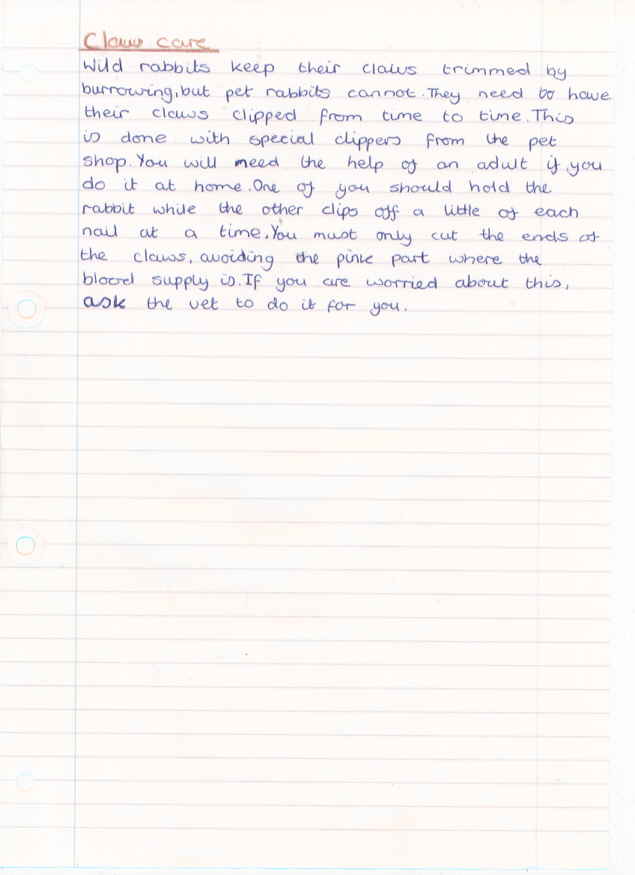 Claw care
Wild rabbits keep their claws trimmed by
burrowing, but pet rabbits cannot. They need to have
their claws clipped from time to time. This
is done with special clippers from the pet
shop. You will need the help of an adult if you
do it at home. One of you should hold the
rabbit while the other clips off a little of each
nail at a time. You must only cut the ends of
the claws, avoiding the pink part where the
blood supply is. If you are worried about this,
ask the vet to do it for you.